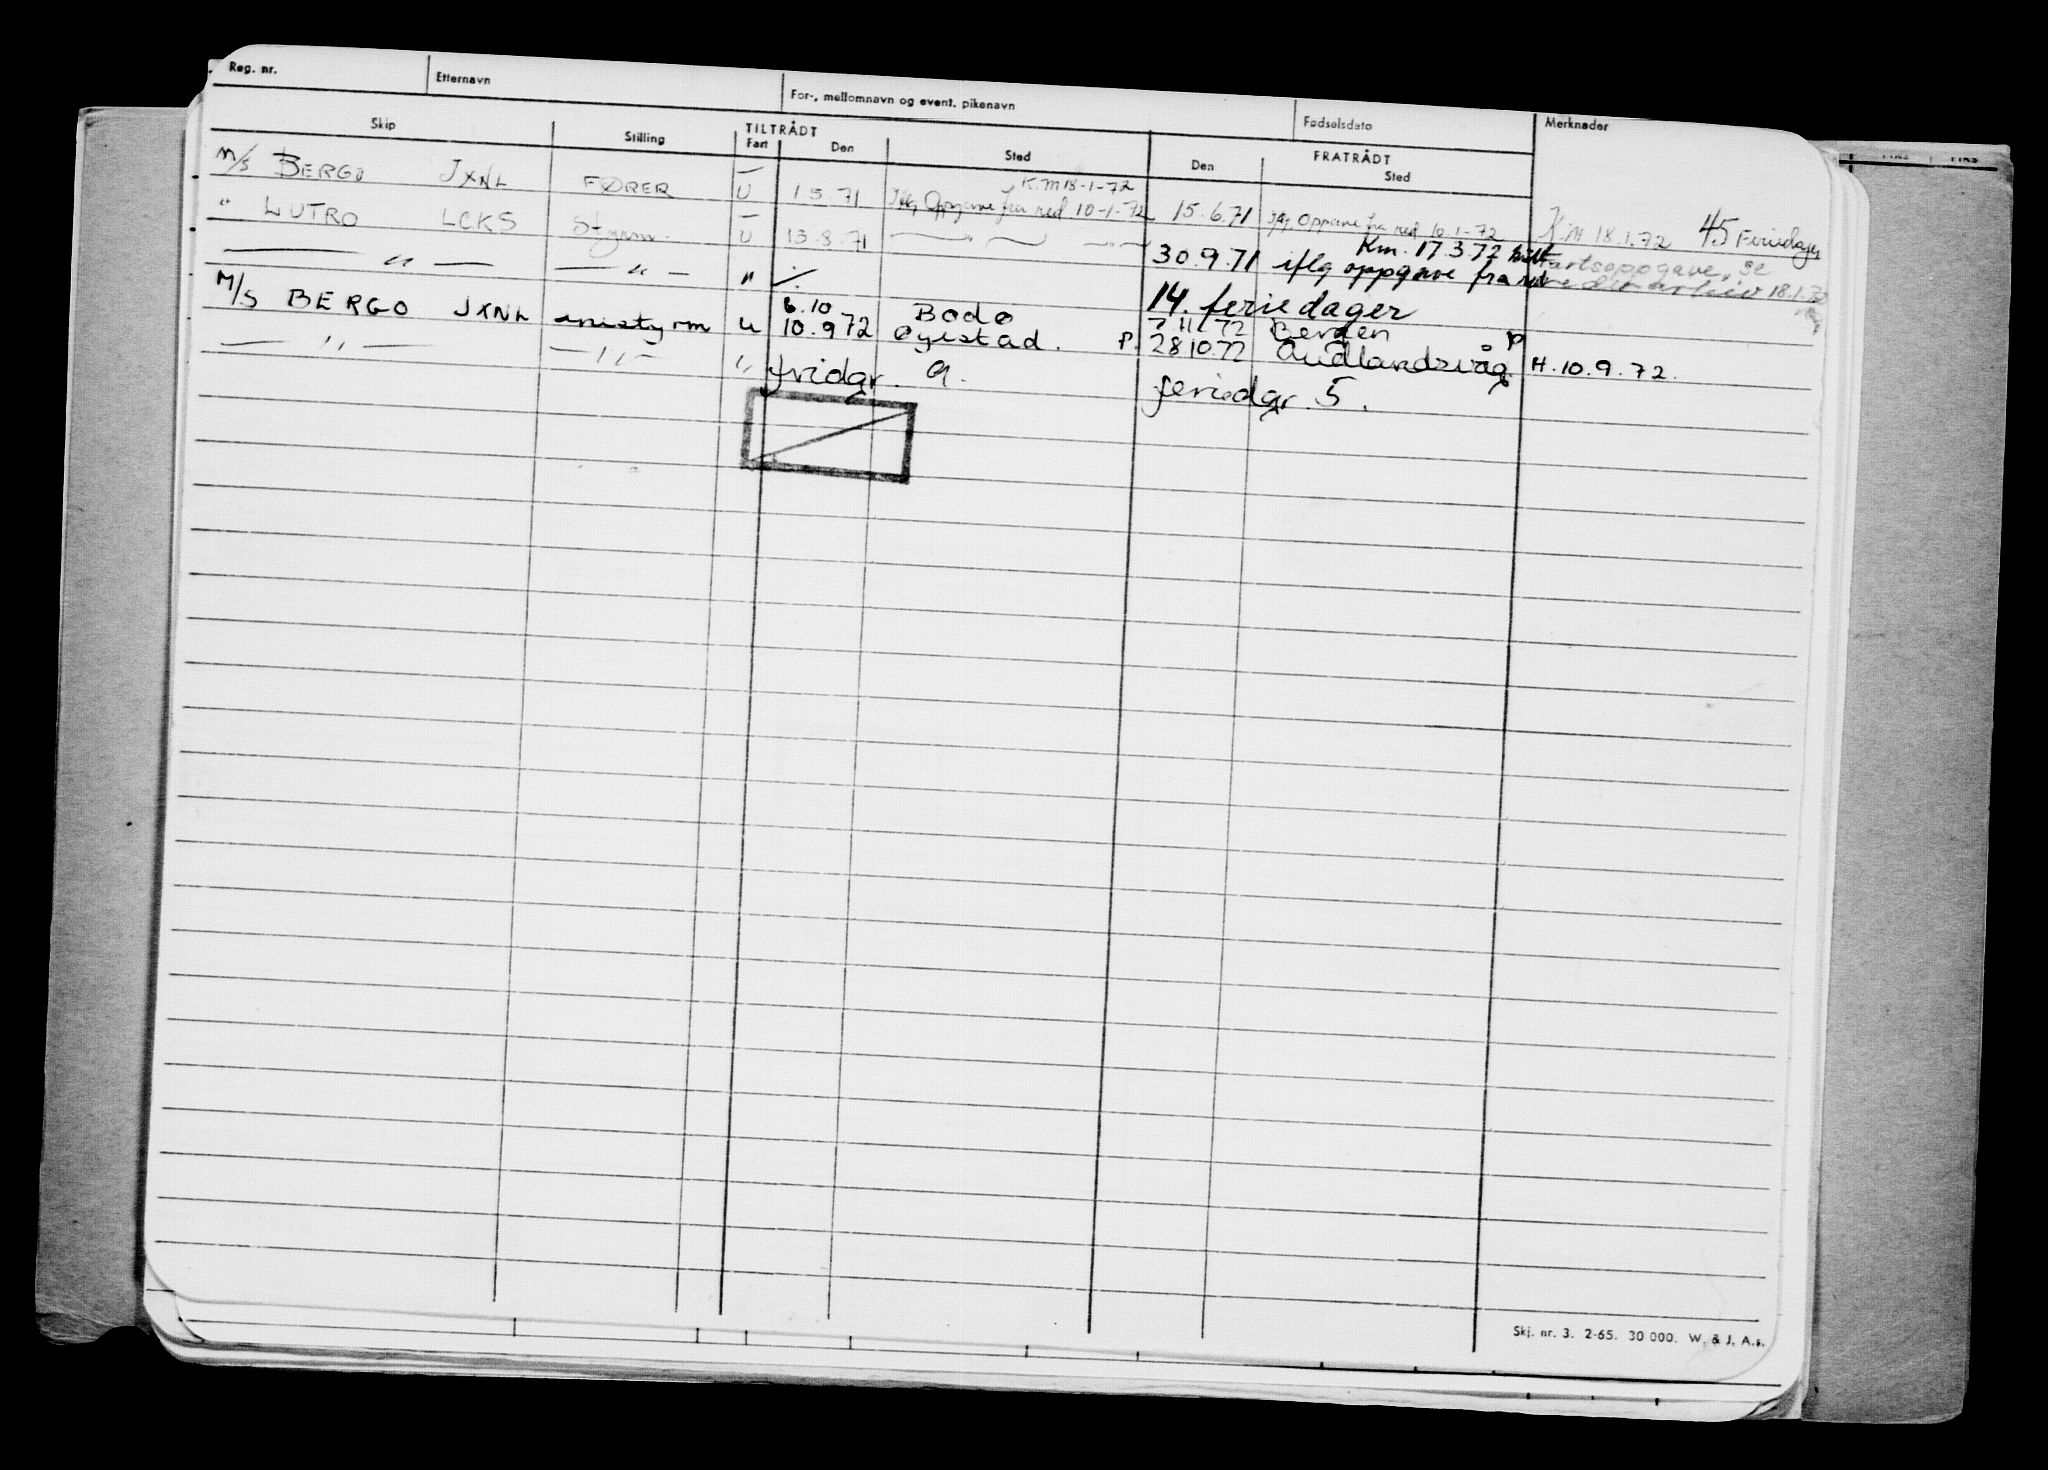 Reg. nr. Etternavn For-, mellomnavn og event. pikenavn Fødselsdato Merknader
Skip Stilling TILTRÅDT FRATRÅDT
Fart Den Sted Den Sted
K.M 18-1-72
M/S BERGO JXNL FØRER U 1.5.71 Iflg Oppgave fra red 10-1-72 15.6.71 Iflg Oppgave fra red 10.1-72 K.M 18.1.72 45 Feriedager
" LUTRO LCKS Styrm. U 13.8.71 Km. 17.3.72
— " — — " — " 30.9.71 iflg oppgave fra red fartsoppgave, se
14. feriedager 18.1.72
M/S BERGO JXNL enestyrm u 6.10 Bodø 7 11 72 Bergen
10.9 72 Øyestad. P. 28 10.72 Audlandsvåg P H. 10.9.72.
— " — — " — " fridgr. 9. feriedgr. 5.
Skj. nr. 3. 2-65. 30 000. W. & J. A.s.